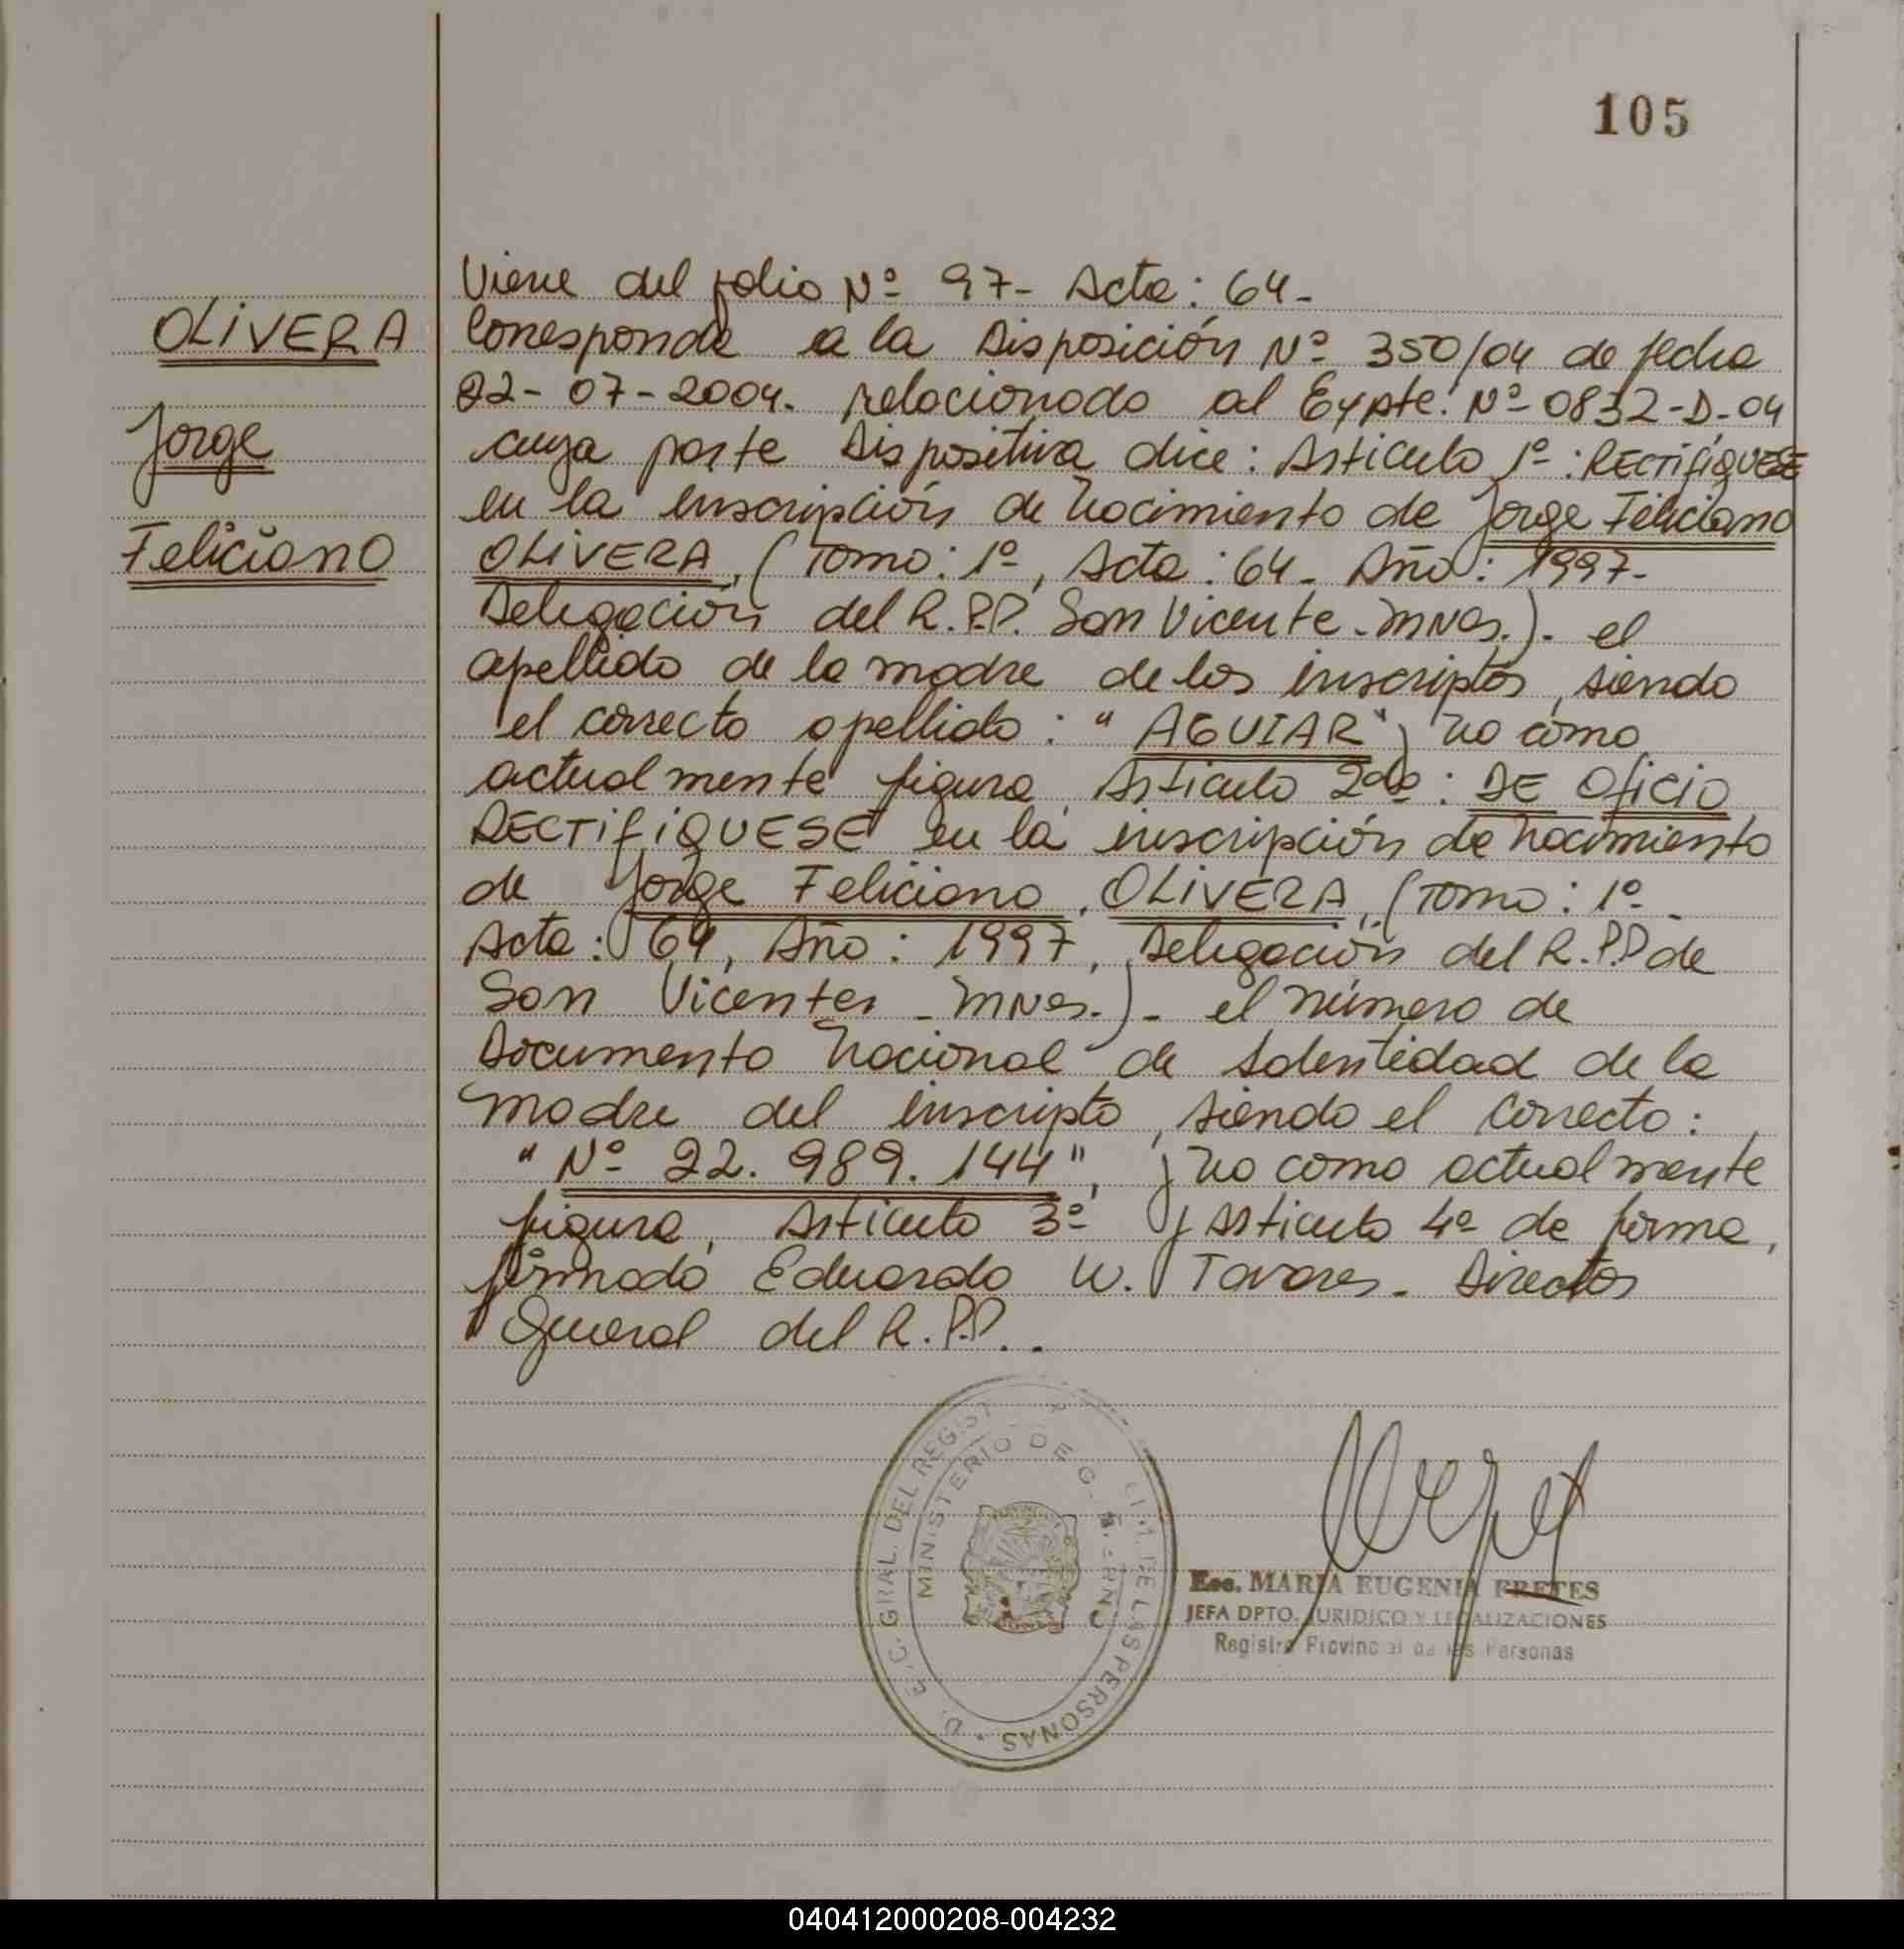 105
OLIVERA
Jorge
Feliciano
Viene del folio Nº 97- Acta: 64-
Corresponde a la Disposición Nº 350/04 de fecha
22-07-2004. relacionado al Expte. Nº 0832-D-04
cuya parte Dispositiva dice: Articulo 1º: RECTIFIQUESE
en la inscripción de nacimiento de Jorge Feliciano
OLIVERA, (Tomo: 1º, Acta: 64- Año: 1997-
Delegación del R.P.P. San Vicente-MNes.)- el
apellido de la madre de los inscriptos, siendo
el correcto apellido: "AGUIAR" y no como
actualmente figura. Articulo 2do: DE Oficio
RECTIFIQUESE en la inscripción de nacimiento
de Jorge Feliciano, OLIVERA, (Tomo: 1º-
Acta: 64, Año: 1997, Delegación del R.P.P de
San Vicente, -MNes.)- el número de
Documento nacional de Identidad de la
madre del inscripto, siendo el correcto:
"Nº 22.989.144", y no como actualmente
figura, Articulo 3º y Articulo 4º de forma,
firmado Eduardo W. Tavares- Director
General del R.P.P..
D. E. C. GRAL. DEL REGIST DE LAS PERSONAS
MINISTERIO DE G
Esc. MARIA EUGENIA FRETES
JEFA DPTO. JURIDICO Y LEGALIZACIONES
Registro Provincial de las Personas
040412000208-004232